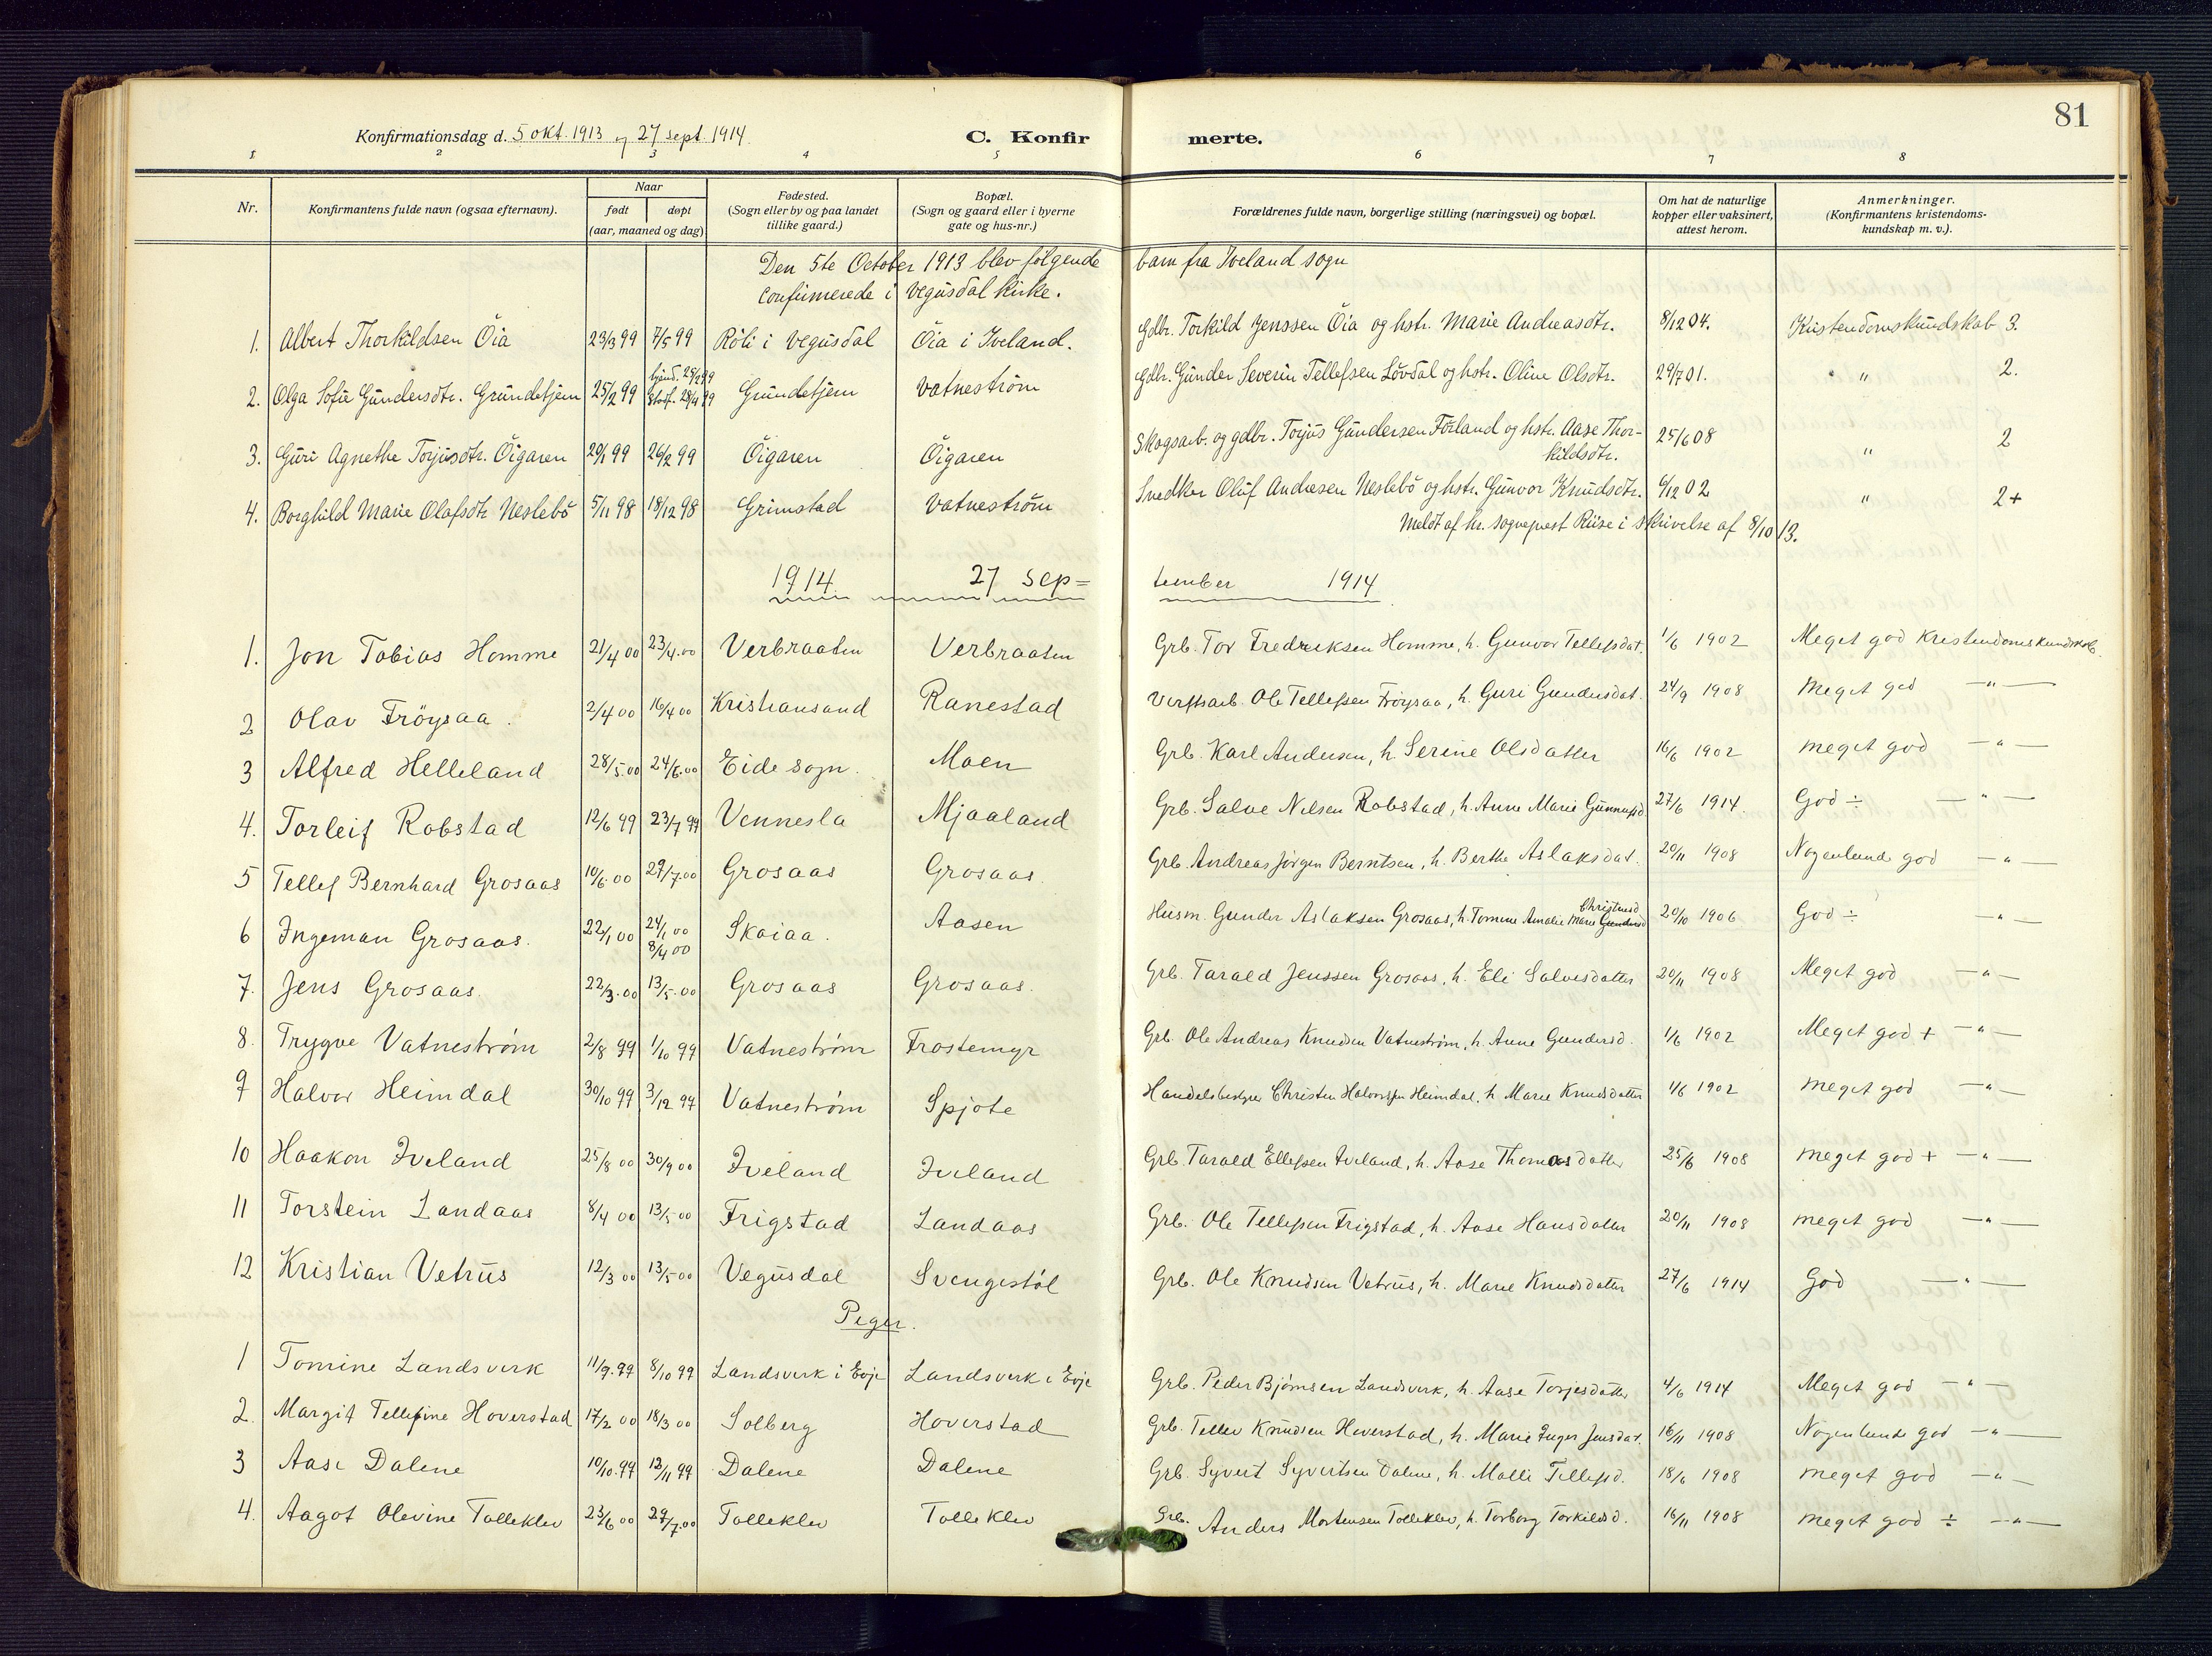 81
Konfirmationsdag d. 5 okt. 1913 og 27 sept. 1914. C. Konfirmerte.
1 2 3 4 5 6 7 8
Nr. Konfirmantens fulde navn (ogsaa efternavn). Naar født døpt (aar, maaned og dag) Fødested. (Sogn eller by og paa landet tillike gaard.) Bopæl. (Sogn og gaard eller i byerne gate og hus-nr.) Forældrenes fulde navn, borgerlige stilling (næringsvei) og bopæl. Om hat de naturlige kopper eller vaksinert, attest herom. Anmerkninger. (Konfirmantens kristendoms-kundskap m. v.).
Den 5te October 1913 blev følgende barn fra Iveland sogn
confirmerede i Vegusdal kirke.
1. Albert Thorkildsen Öia 23/3 99 7/5 99 Röli i Vegusdal Öia i Iveland. Gdbr. Torkild Jenssen Öia og hstr. Marie Andreasdtr. 8/12 04. Kristendomskundskab 3.
2. Olga Sofie Gundersdtr. Grundetjern 25/2 99 hjmd. 25/2 99 Stadf. 28/4 99 Grundetjern Vatneström Gdbr. Gunder Severin Tellefsen Lövdal og hstr. Oline Olsdtr. 29/7 01. " 2.
3. Guri Agnethe Torjusdtr. Öigaren 20/1 99 26/2 99 Öigaren Öigaren Skogsarb. og gdbr. Torjus Gundersen Förland og hstr. Aase Thorkildsdtr. 25/6 08 " 2
4. Borghild Marie Olafsdtr Neslebö 5/11 98 18/12 98 Grimstad Vatneström Snedker Oluf Andresen Neslebö og hstr. Gunvor Knudsdtr. 6/12 02 " 2+
Meldt af hr. sogneprest Riise i skrivelse af 8/10 13.
1914 27 September 1914
1. Jon Tobias Homme 21/4 00 23/4.00 Verbraaten Verbraaten Grb. Tor Fredriksen Homme, h. Gunvor Tellefsdat. 1/6 1902 Meget god Kristendomskundskab.
2 Olav Fröysaa. 2/4 00 16/4 00 Kristiansand Ranestad Verftsarb. Ole Tellefsen Fröysaa, h. Guri Gundersdat. 24/9 1908 Meget god — " —
3 Alfred Helleland 28/5.00 24/6.00 Eide sogn. Moen Grb. Karl Andersen, h. Serine Olsdatter 16/6 1902 meget god — " —
4. Torleif Robstad 12/6 99 23/7 99 Vennesla Mjaaland Grb. Salve Nilsen Robstad, h. Anne Marie Gunnufsd. 27/6 1914. God ÷ — " —
5 Tellef Bernhard Grosaas 10/6 00 29/7.00 Grosaas Grosaas. Grb. Andreas Jörgen Berntsen, h. Berthe Aslaksdat. 20/11 1908 Nogenlunde god — " —
6 Ingeman Grosaas. 22/1 00 24/1 00 8/4 00 Skaiaa. Aasen Husm. Gunder Aslaksen Grosaas, h. Tomine Amalie Marie Gundersd 20/10 1906 God ÷ — " —
7. Jens Grosaas. 22/3.00 13/5.00 Grosaas Grosaas. Grb. Tarald Jenssen Grosaas, h. Eli Salvesdatter 20/11 1908 Meget god — " —
8. Trygve Vatneström 2/8 99 1/10 99 Vatneström Frostemyr Grb. Ole Andreas Knudsen Vatneström, h. Anne Gundersd. 1/6 1902 Meget god + — " —
9 Halvor Heimdal 30/10 99 3/12 99 Vatneström Spjote Handelsbestyrer Christen Halvorsen Heimdal, h Marie Knudsdatter 1/6 1902 meget god — " —
10 Haakon Iveland 25/8 00 30/9 00 Iveland Iveland Grb. Tarald Ellefsen Iveland, h. Aase Thomasdatter 25/6 1908 meget god + — " —
11 Torstein Landaas 8/4 00 13/5 00 Frigstad Landaas Grb. Ole Tellefsen Frigstad, h. Aase Hansdatter 20/11 1908 meget god — " —
12 Kristian Vetrus 12/3 00 13/5 00 Vegusdal Svengestöl Grb. Ole Knudsen Vetrus, h. Marie Knudsdatter 27/6 1914 God — " —
Piger.
1 Tomine Landsverk 11/9.99 8/10 99 Landsverk i Evje Landsverk i Evje Grb. Peder Björnsen Landsverk, h. Aase Torjesdatter 4/6 1914 Meget god — " —
2. Margit Tellefine Hoverstad 17/2 00 18/3 00 Solberg Hoverstad Grb. Tellev Knudsen Hoverstad, h. Marie Inger Jensdat. 16/11 1908 Nogenlunde god — " —
3 Aase Dalene 10/10.99 12/11 99 Dalene Dalene Grb. Syvert Syvertsen Dalene, h. Malli Tellefsd. 18/6 1908 meget god — " —
4. Aagot Olevine Tolleklev 23/6 00 29/7.00 Tolleklev Tolleklev Grb. Anders Mortensen Tolleklev, h. Torborg Torkildsd. 16/11 1908 meget god ÷ — " —